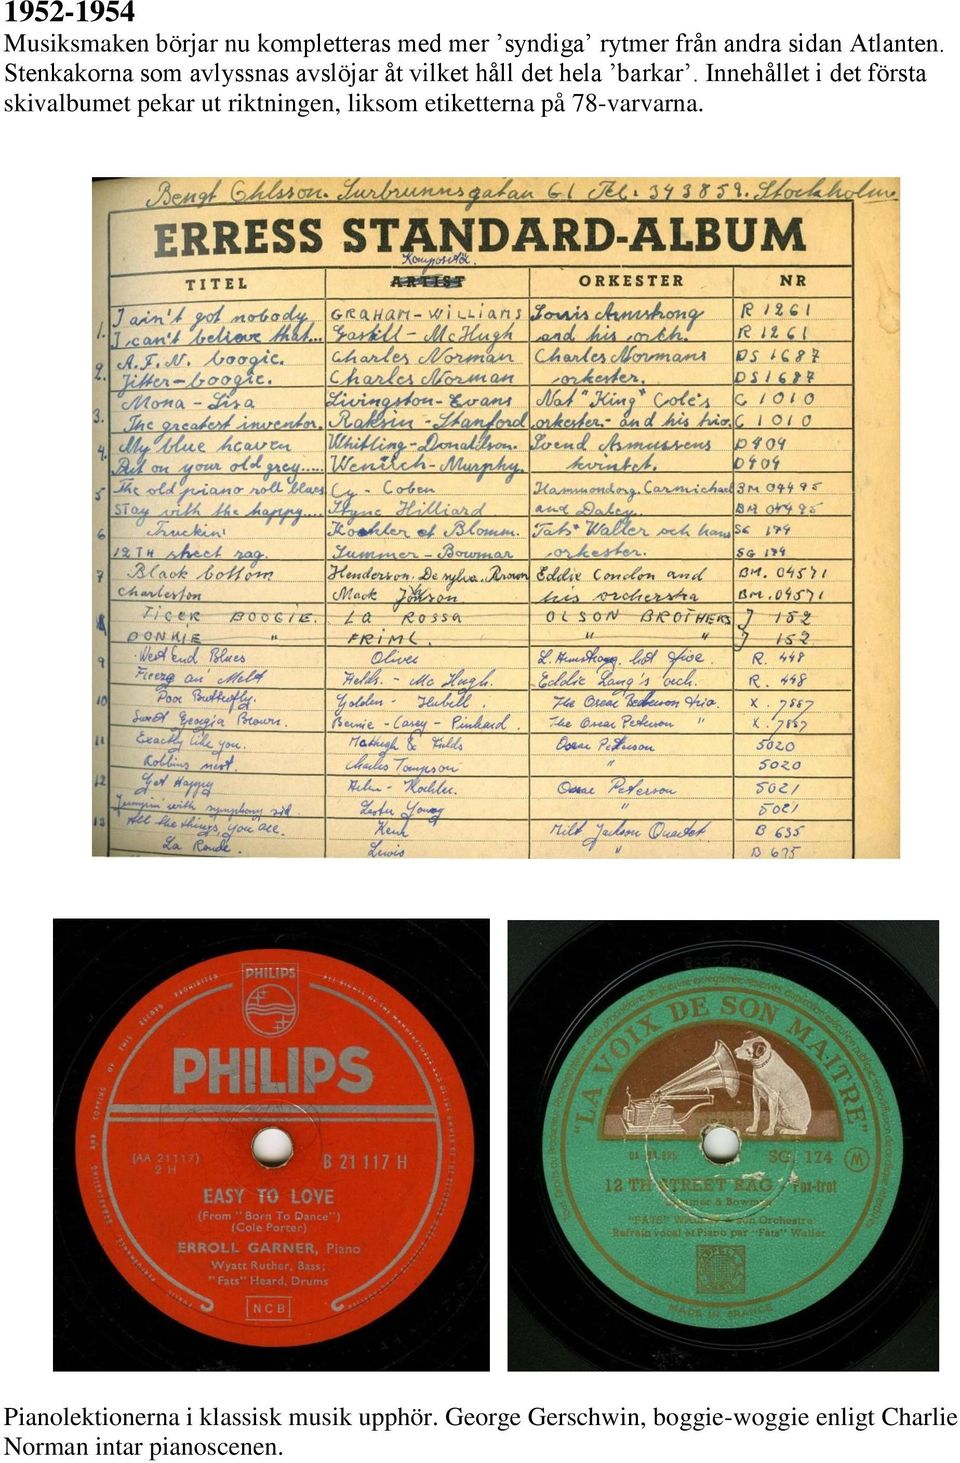 1952-1954
Musiksmaken börjar nu kompletteras med mer ’syndiga’ rytmer från andra sidan Atlanten.
Stenkakorna som avlyssnas avslöjar åt vilket håll det hela ’barkar’. Innehållet i det första
skivalbumet pekar ut riktningen, liksom etiketterna på 78-varvarna.
Bengt Ohlsson. Surbrunnsgatan 61 Tel: 343859. Stockholm
ERRESS STANDARD-ALBUM
Kompositör.
TITEL ARTIST ORKESTER NR
1. I ain't got nobody GRAHAM-WILLIAMS Louis Armstrong R 1261
I can't believe that... Gaskill-McHugh and his orch. R 1261
2. A.F.N. boogie. Charles Norman Charles Normans DS 1687
Jitter-boogie. Charles Norman orkester. DS1687
3. Mona-Lisa Livingston-Evans Nat "King" Cole's C 1010
The greatest inventor. Raksin-Stanford orkester.- and his trio. C 1010
4. My blue heaven Whitling-Donaldson. Svend Asmussens D404
Put on your old grey..... Wenrich-Murphy. kvintet. D404
5 The old piano roll blues Cy-Coben Hammondorg. Carmichael BM 04495
Stay with the happy.... Hilliard and Daley. BM 04495
6 Truckin' Koehler et Bloomm. "Fats" Waller och hans SG 174
12TH street rag. Summer-Bowmar orkester. SG 174
7 Black bottom Henderson. De sylva. Brown Eddie Condon and BM. 04571
Charleston Mack Jonson his orchestra BM. 04571
8 TIGER BOOGIE. LA ROSSA OLSON BROTHERS J 152
DONKIE " FRIML. " " J 152
9 West End Blues Oliver L. Armstrong. hot five. R. 448
Freeze an' Melt Fields.-Mc Hugh. Eddie Lang's orch. R. 448
10 Poor Butterfly. Golden-Hubell. The Oscar Peterson trio. X. 7887
Sweet Georgia Brown. Bernie-Casey-Pinkard. The Oscar Peterson " X. 7887
11 Exactly like you. McHugh & Fields Oscar Peterson 5020
Robbins nest. Charles Tompson " 5020
12 Get Happy Koehler. Oscar Peterson 5021
Jumpin' with symphony sid Lester Young " 5021
13 All the things, you are. Kern Milt Jackson Quartet B 635
La Ronde. Lewis " B 675
PHILIPS
PHILIPS
(AA 21117)
2 H
B 21 117 H
EASY TO LOVE
(From "Born To Dance")
(Cole Porter)
ERROLL GARNER, Piano
Wyatt Ruther, Bass;
"Fats" Heard, Drums
NCB
"LA VOIX DE SON MAITRE"
SG 174
12 TH STREET RAG - Fox-trot
Sumner & Bowman
"FATS" WALLER & son Orchestre
Refrain vocal et Piano par "Fats" Waller
MADE IN FRANCE
Pianolektionerna i klassisk musik upphör. George Gerschwin, boggie-woggie enligt Charlie
Norman intar pianoscenen.